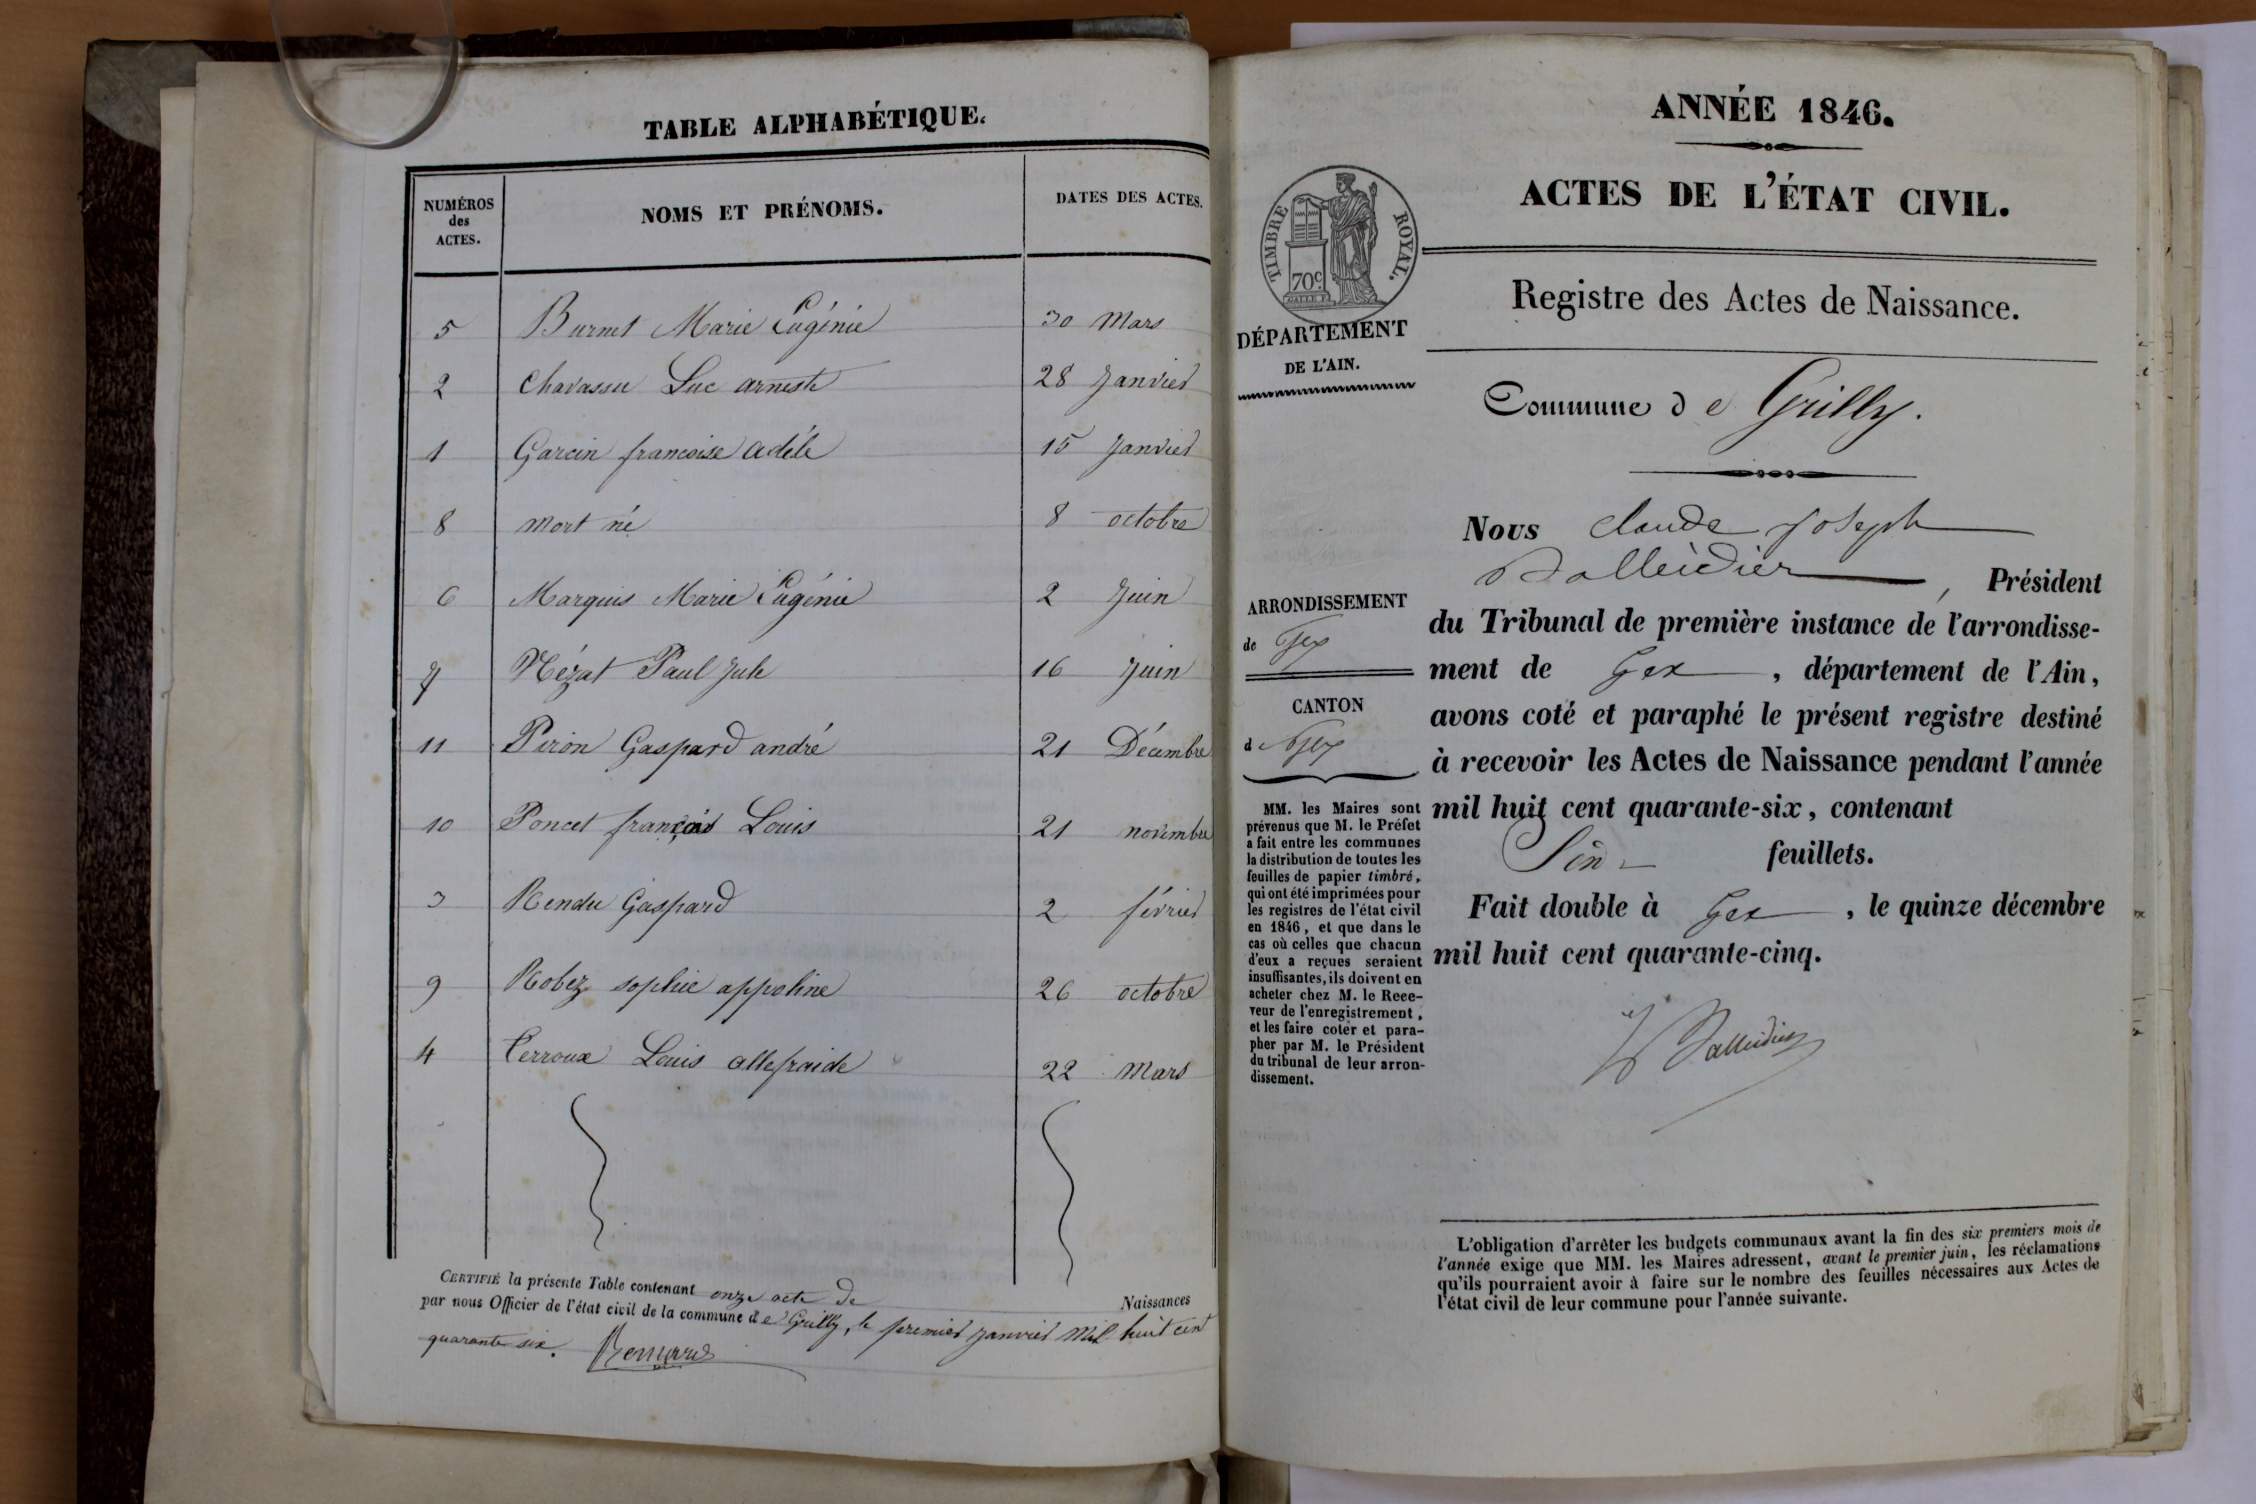 TABLE ALPHABÉTIQUE.
NUMÉROS des ACTES.
NOMS ET PRÉNOMS.
DATES DES ACTES.
5 Burnet Marie Eugénie 30 Mars
2 Chavassu Luc arneste 28 Janvier
1 Garcin francoise adéle 15 Janvier
8 mort né 8 octobre
6 Marquis Marie Eugénie 2 Juin
7 Nézat Paul Jule 16 Juin
11 Piron Gaspard andré 21 Décembre
10 Poncet françois Louis 21 novembre
3 Rendu Gaspard 2 février
9 Robez sophie appoline 26 octobre
4 Terroux Louis allefraide 22 Mars
CERTIFIÉ la présente Table contenant onze acte de Naissances
par nous Officier de l'état civil de la commune de Grilly, le premier janvier Mil huit cent
quarante six.
ANNÉE 1846.
ACTES DE L'ÉTAT CIVIL.
TIMBRE ROYAL.
70c
DÉPARTEMENT
DE L'AIN.
Registre des Actes de Naissance.
Commune de Grilly.
Nous Claude Joseph
Balleidier, Président
du Tribunal de première instance de l'arrondisse-
ment de Gex, département de l'Ain,
avons coté et paraphé le présent registre destiné
à recevoir les Actes de Naissance pendant l'année
mil huit cent quarante-six, contenant
feuillets.
Fait double à Gex, le quinze décembre
mil huit cent quarante-cinq.
Balleidier
ARRONDISSEMENT
de Gex
CANTON
de Gex
MM. les Maires sont
prévenus que M. le Préfet
a fait entre les communes
la distribution de toutes les
feuilles de papier timbré,
qui ont été imprimées pour
les registres de l'état civil
en 1846, et que dans le
cas où celles que chacun
d'eux a reçues seraient
insuffisantes, ils doivent en
acheter chez M. le Rece-
veur de l'enregistrement,
et les faire coter et para-
pher par M. le Président
du tribunal de leur arron-
dissement.
L'obligation d'arrêter les budgets communaux avant la fin des six premiers mois de
l'année exige que MM. les Maires adressent, avant le premier juin, les réclamations
qu'ils pourraient avoir à faire sur le nombre des feuilles nécessaires aux Actes de
l'état civil de leur commune pour l'année suivante.